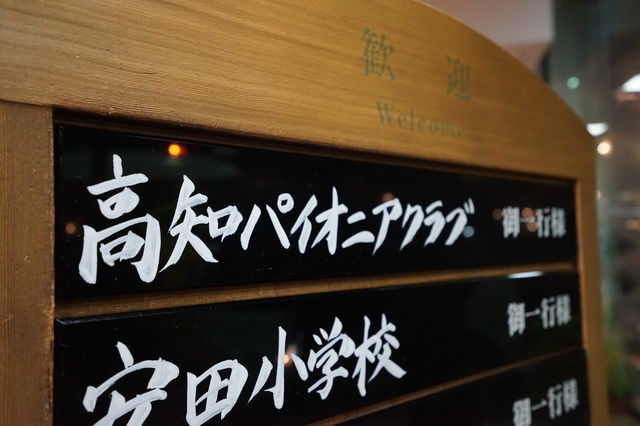 歓迎
Welcome
高知パイオニアクラブ 御一行様
安田小学校 御一行様
御一行様